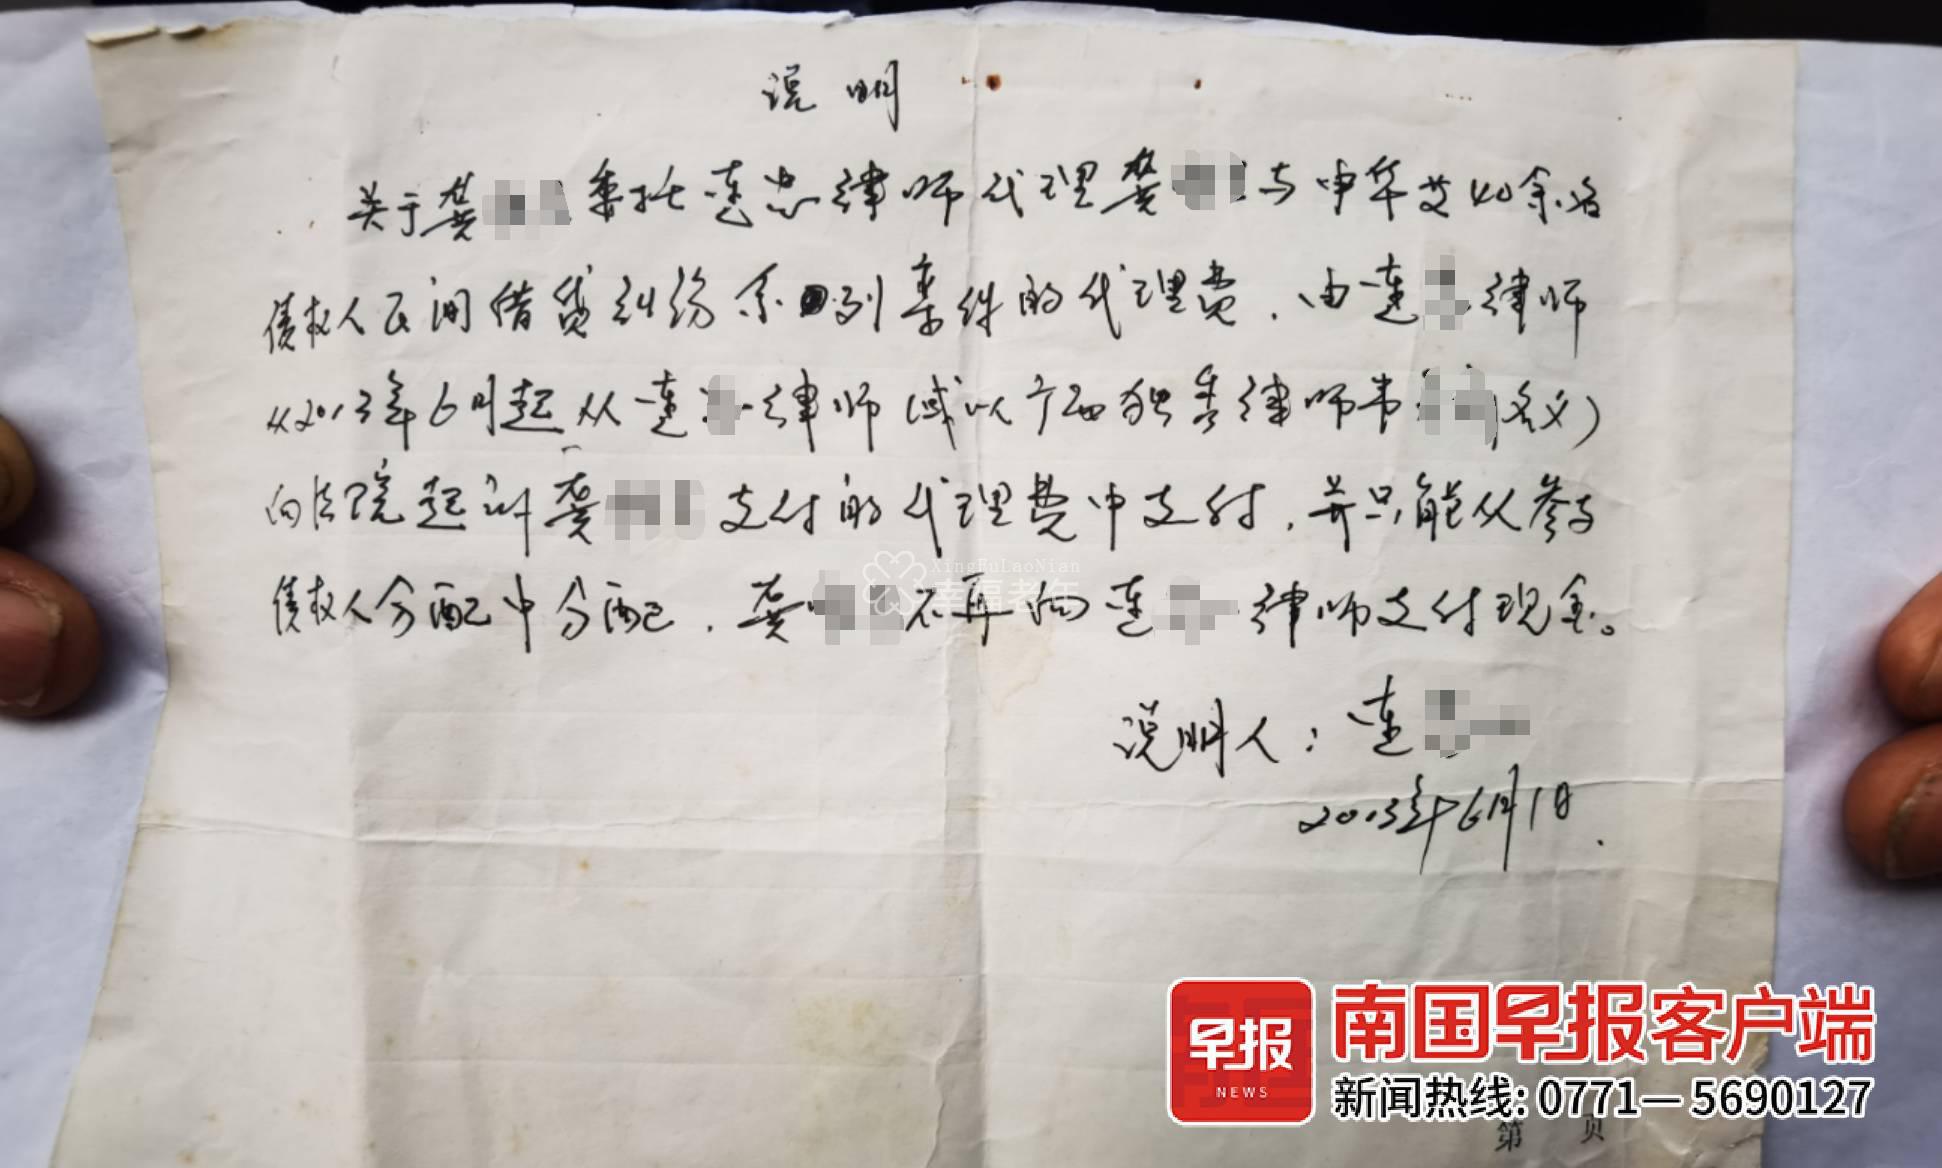 说明
关于龚 委托连忠律师代理龚 与申华等40余名
债权人民间借贷纠纷系列案件的代理费，由连 律师
从2013年6月起从连 律师（或以广西独秀律师事 名义）
向法院起诉龚 支付的代理费中支付，并只能从参与
债权人分配中分配，龚 不再向连 律师支付现金。
XingFuLaoNian
幸福老年
说明人：连
2013年6月1日
早报
NEWS
南国早报客户端
新闻热线：0771—5690127
第 页